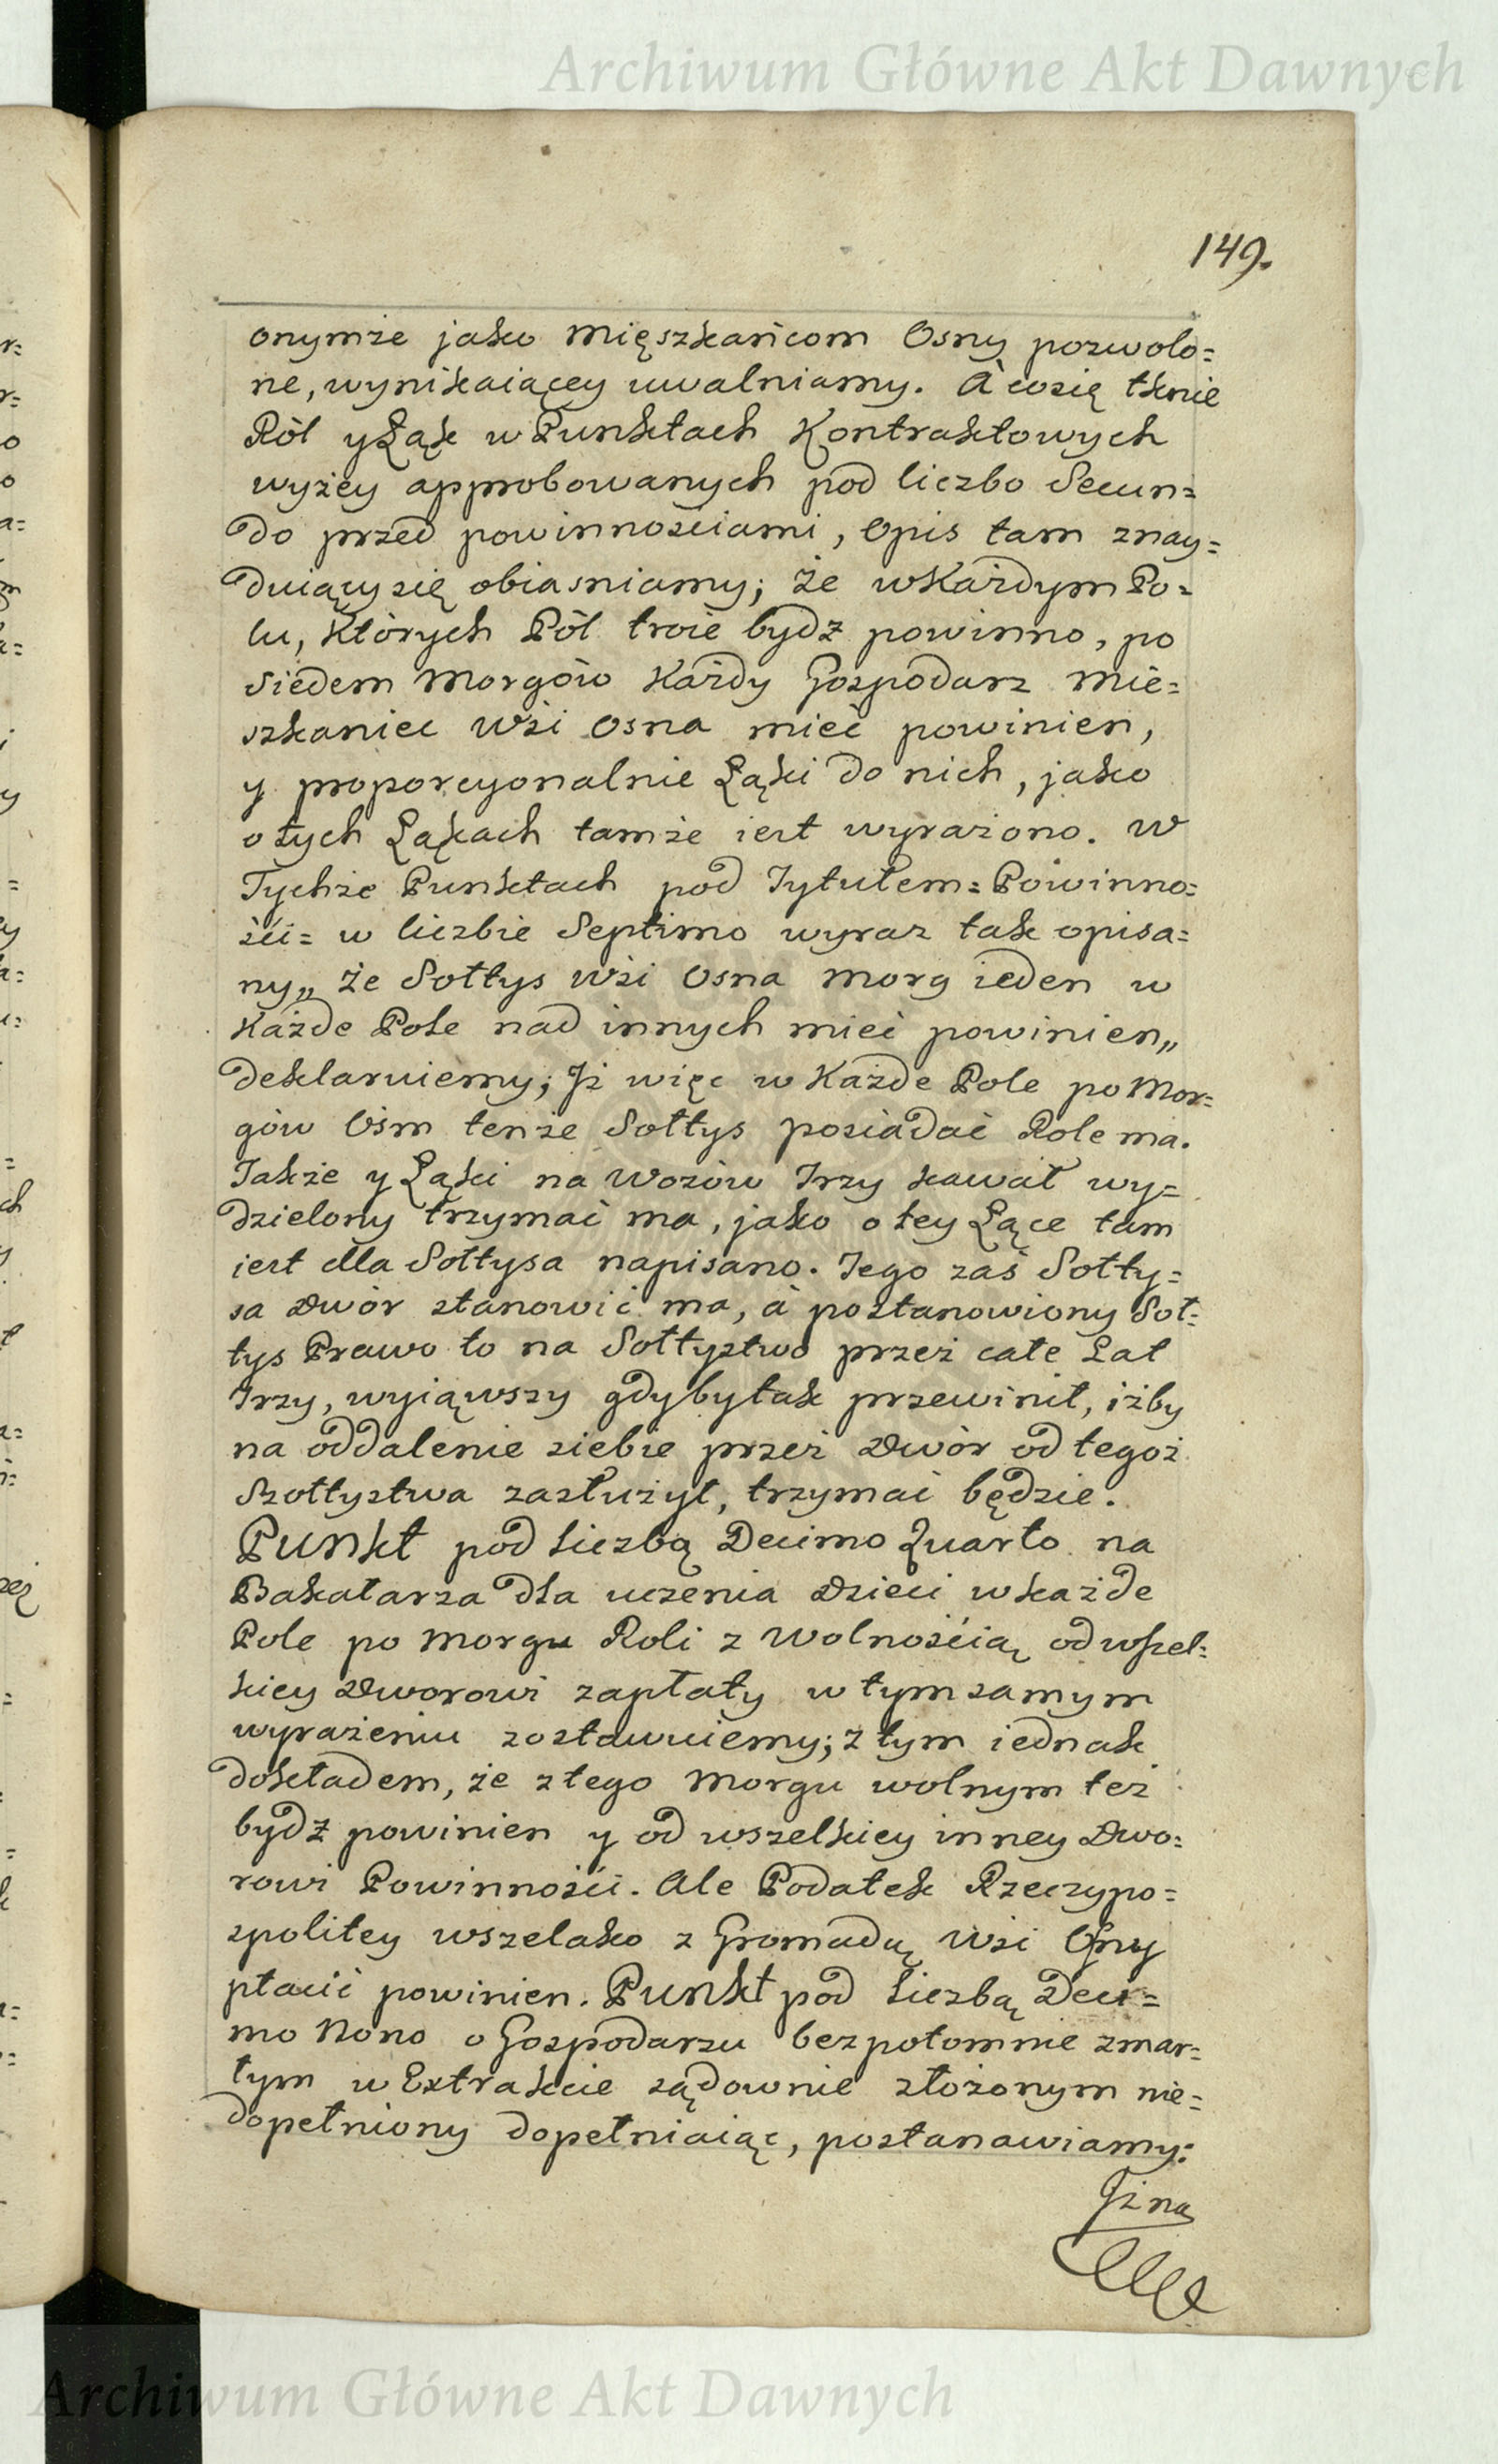 Archiwum Główne Akt Dawnych
149.
onymże jako Mięszkańcom Osny pozwolo=
ne, wynikaiącey uwalniamy. A cosię tknie
Ról y Łąk w Punktach Kontraktowych
wyżey approbowanych pod liczbo Secun=
do przed powinnościami, Opis tam znay=
duiący się obiasniamy; Że w Każdym Po=
lu, Których Pól troie bydź powinno, po
Siedem Morgów Każdy Gospodarz Mie=
szkaniec Wsi Osna mieć powinien,
y proporcyonalnie Łąki do nich, jako
o tych Łąkach tamże iest wyrażono. W
Tychże Punktach pod Tytułem= Powinno=
ści= w liczbie Septimo wyraz tak opisa=
ny„ Że Sołtys Wsi Osna Morg ieden w
Każde Pole nad innych mieć powinien„
deklaruiemy; Iż więc w Każde Pole po Mor=
gów Ośm tenże Sołtys posiadać Role ma.
Także y Łąki na Wozów Trzy kawał wy=
dzielony trzymać ma, jako o tey Łące tam
iest dla Sołtysa napisano. Tego zaś Sołty=
sa Dwór stanowić ma, á postanowiony Soł=
tys Prawo to na Sołtystwo przez całe Lat
Trzy, wyiąwszy gdyby tak przewinił, iżby
na oddalenie siebie przez Dwór od tegoż
Szołtystwa zasłużył, trzymać będzie.
Punkt pod Liczbą Decimo Quarto na
Bakałarza dla uczenia Dzieci w każde
Pole po Morgu Roli z Wolnością od wszel=
kiey Dworowi zapłaty w tym samym
wyrażeniu zostawuiemy; z tym iednak
dokładem, że z tego Morgu wolnym też
bydź powinien y od wszelkiey inney Dwo=
rowi Powinności. Ale Podatek Rzeczypo=
spolitey wszelako z Gromadą Wsi Osny
płacić powinien. Punkt pod Liczbą Deci=
mo Nono o Gospodarzu bezpotomnie zmar=
łym w Extrakcie sądownie złożonym nie=
dopełniony dopełniaiąc, postanawiamy:
Iż na
Archiwum Główne Akt Dawnych